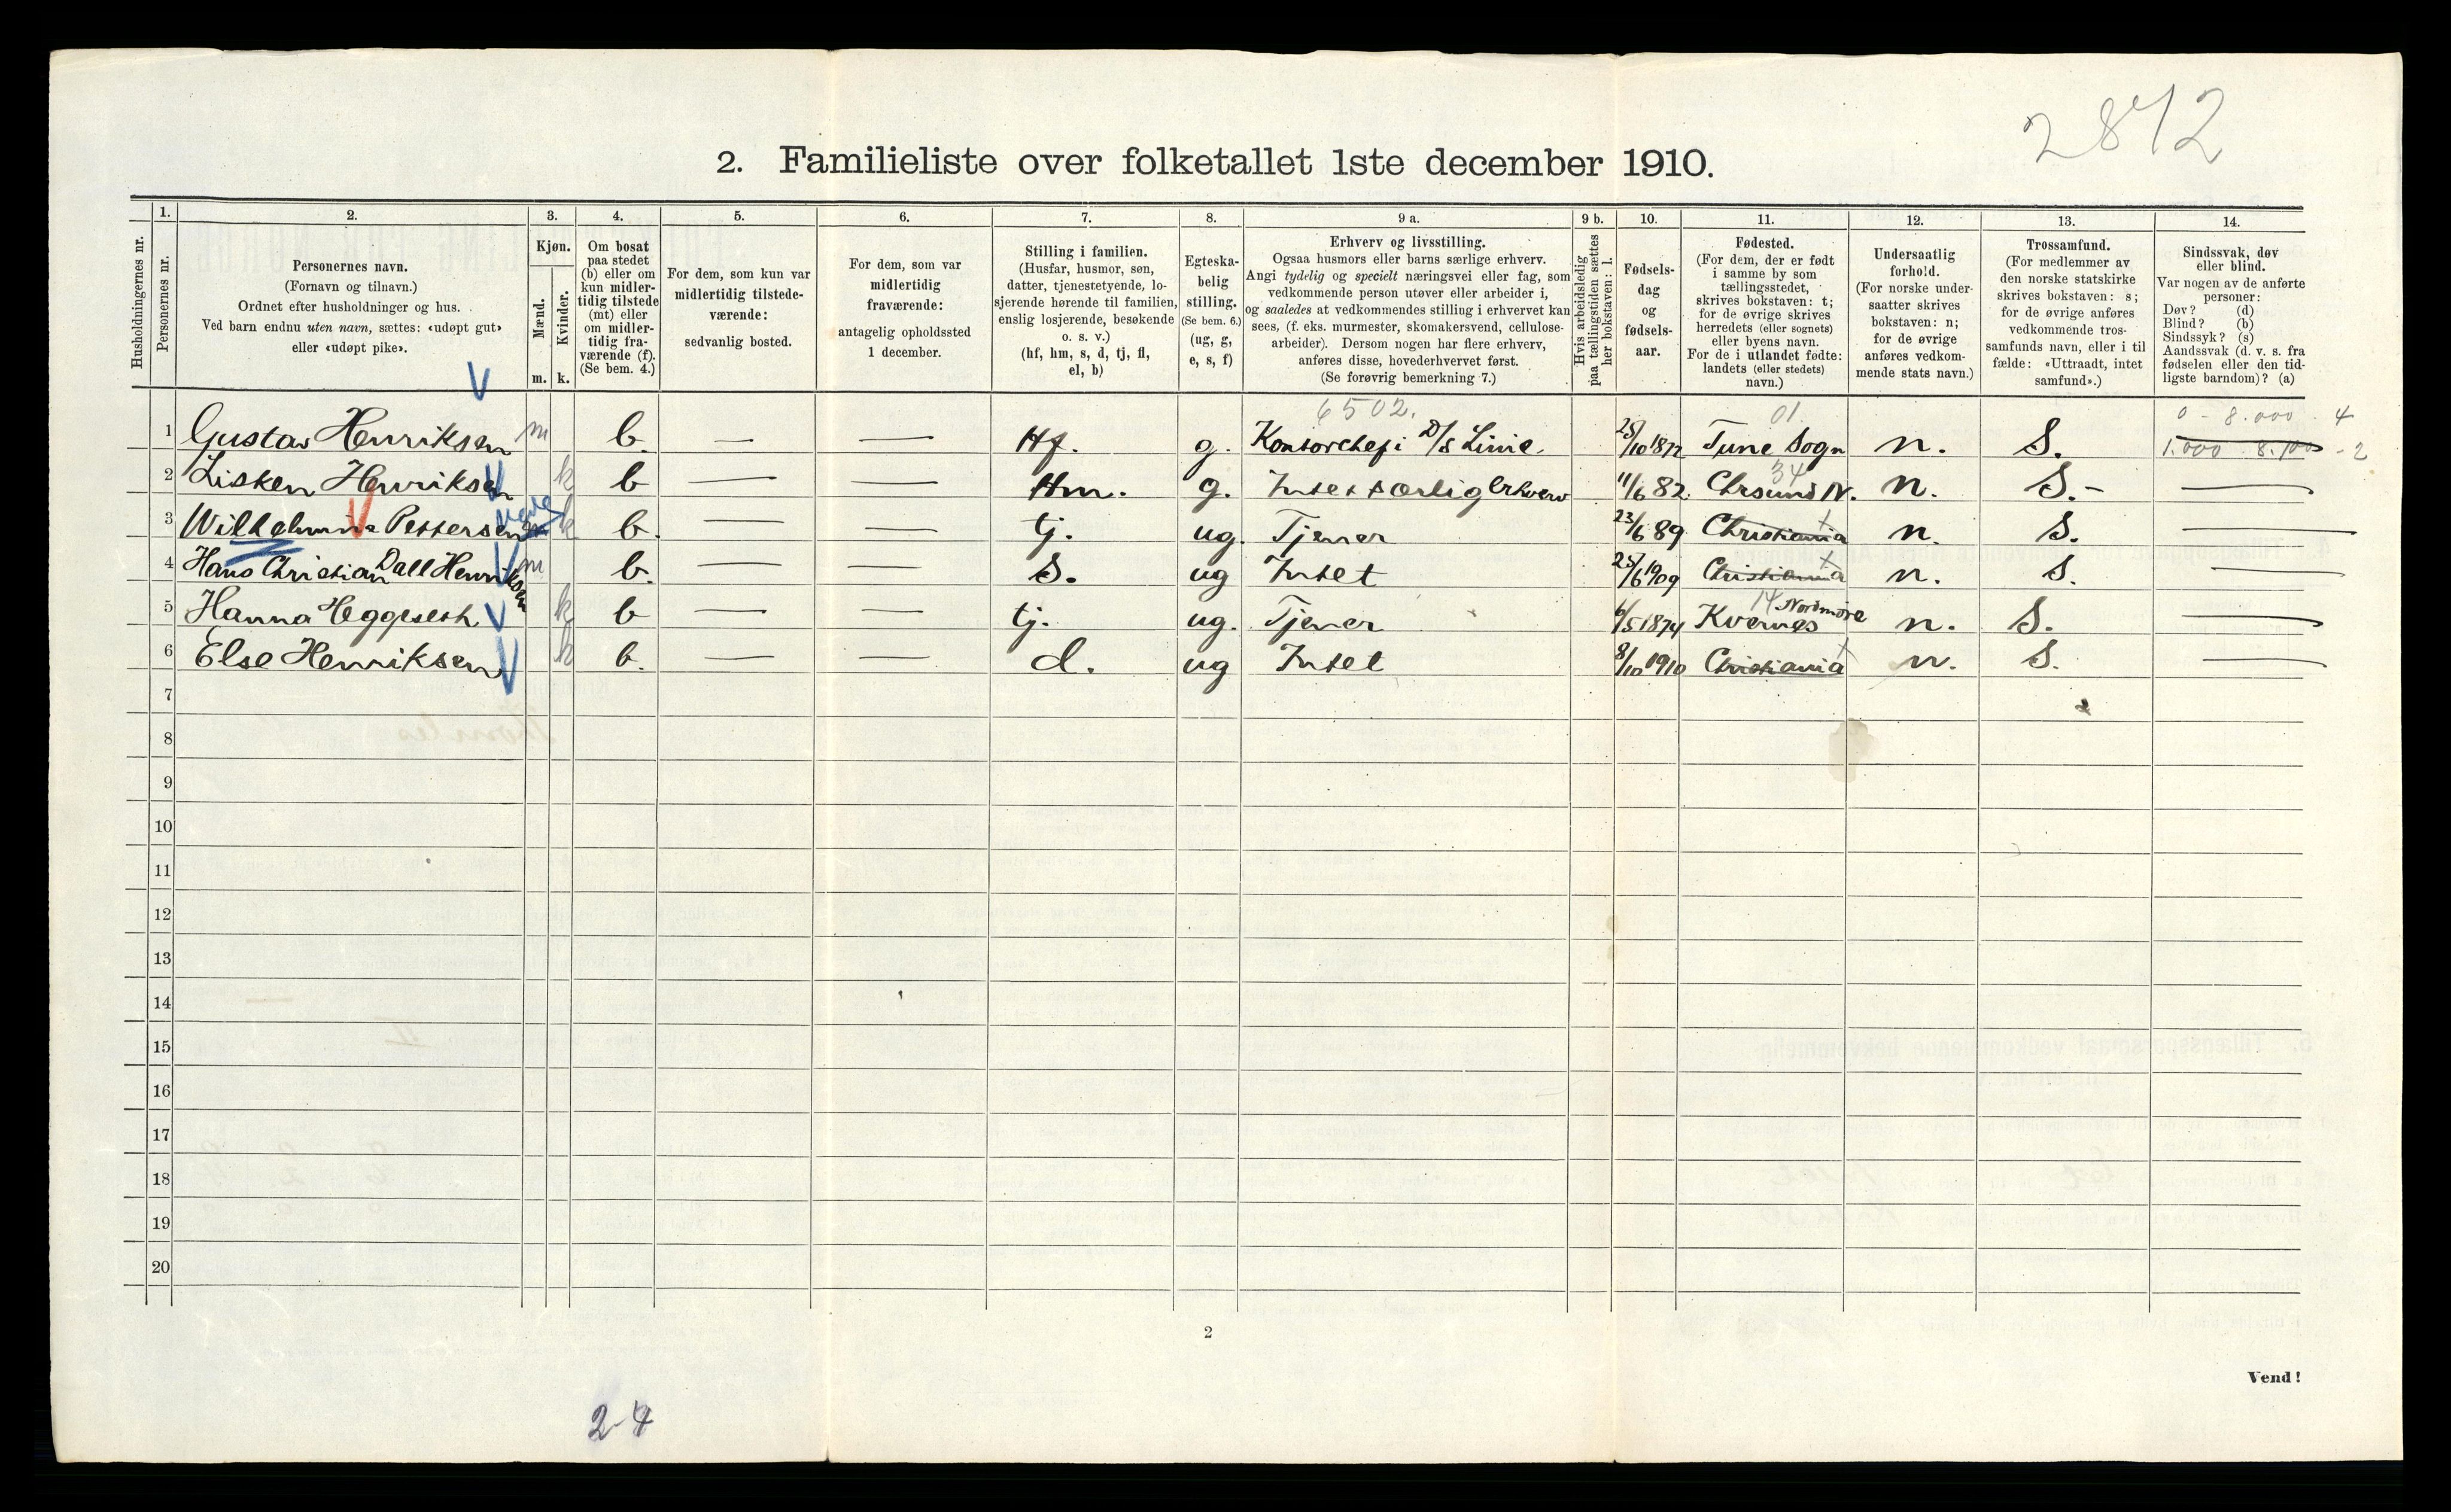 2872
2. Familieliste over folketallet 1ste december 1910.
1. 2. 3. 4. 5. 6. 7. 8. 9 a. 9 b. 10. 11. 12. 13. 14.
Husholdningernes nr.
Personernes nr.
Personernes navn.
(Fornavn og tilnavn.)
Ordnet efter husholdninger og hus.
Ved barn endnu uten navn, sættes: «udøpt gut»
eller «udøpt pike».
Kjøn.
Mænd.
Kvinder.
m. k.
Om bosat
paa stedet
(b) eller om
kun midler-
tidig tilstede
(mt) eller
om midler-
tidig fra-
værende (f).
(Se bem. 4.)
For dem, som kun var
midlertidig tilstede-
værende:
sedvanlig bosted.
For dem, som var
midlertidig
fraværende:
antagelig opholdssted
1 december.
Stilling i familien.
(Husfar, husmor, søn,
datter, tjenestetyende, lo-
sjerende hørende til familien,
enslig losjerende, besøkende
o. s. v.)
(hf, hm, s, d, tj, fl,
el, b)
Egteska-
belig
stilling.
(Se bem. 6.)
(ug, g,
e, s, f)
Erhverv og livsstilling.
Ogsaa husmors eller barns særlige erhverv.
Angi tydelig og specielt næringsvei eller fag, som
vedkommende person utøver eller arbeider i,
og saaledes at vedkommendes stilling i erhvervet kan
sees, (f. eks. murmester, skomakersvend, cellulose-
arbeider). Dersom nogen har flere erhverv,
anføres disse, hovederhvervet først.
(Se forøvrig bemerkning 7.)
Hvis arbeidsledig
paa tællingstiden sættes
her bokstaven: l.
Fødsels-
dag
og
fødsels-
aar.
Fødested.
(For dem, der er født
i samme by som
tællingsstedet,
skrives bokstaven: t;
for de øvrige skrives
herredets (eller sognets)
eller byens navn.
For de i utlandet fødte:
landets (eller stedets)
navn.)
Undersaatlig
forhold.
(For norske under-
saatter skrives
bokstaven: n;
for de øvrige
anføres vedkom-
mende stats navn.)
Trossamfund.
(For medlemmer av
den norske statskirke
skrives bokstaven: s;
for de øvrige anføres
vedkommende tros-
samfunds navn, eller i til
fælde: «Uttraadt, intet
samfund».)
Sindssvak, døv
eller blind.
Var nogen av de anførte
personer:
Døv? (d)
Blind? (b)
Sindssyk? (s)
Aandssvak (d. v. s. fra
fødselen eller den tid-
ligste barndom)? (a)
6502. 01 0 - 8.000 - 4
1 Gustav Henriksen m b. — — Hf. g. Kontorchef i D/S Linie. 25/10 1872 Tune Sogn n. S. 1.000 8.100 - 2
34
2 Lisken Henriksen k b — — Hm. g. Intet særlig Erhverv 11/6 82 Chrsund N. n. S.- —
3 Wilhelmina Pettersen k b. — — tj. ug. Tjener 23/6 89 Christiania n. S. —
4 Hans Christian Dall Henriksen m b. — — S. ug Intet 25/6 1909 Christiania n. S. —
14 Nordmøre
5 Hanna Heggeseth k b — — tj. ug. Tjener 6/5 1874 Kvernes n. S. —
6 Else Henriksen k b. — — d. ug Intet 8/10 1910 Christiania n. S. —
7
8
9
10
11
12
13
14
15
16
17
18
19
20
2
Vend!
2-4